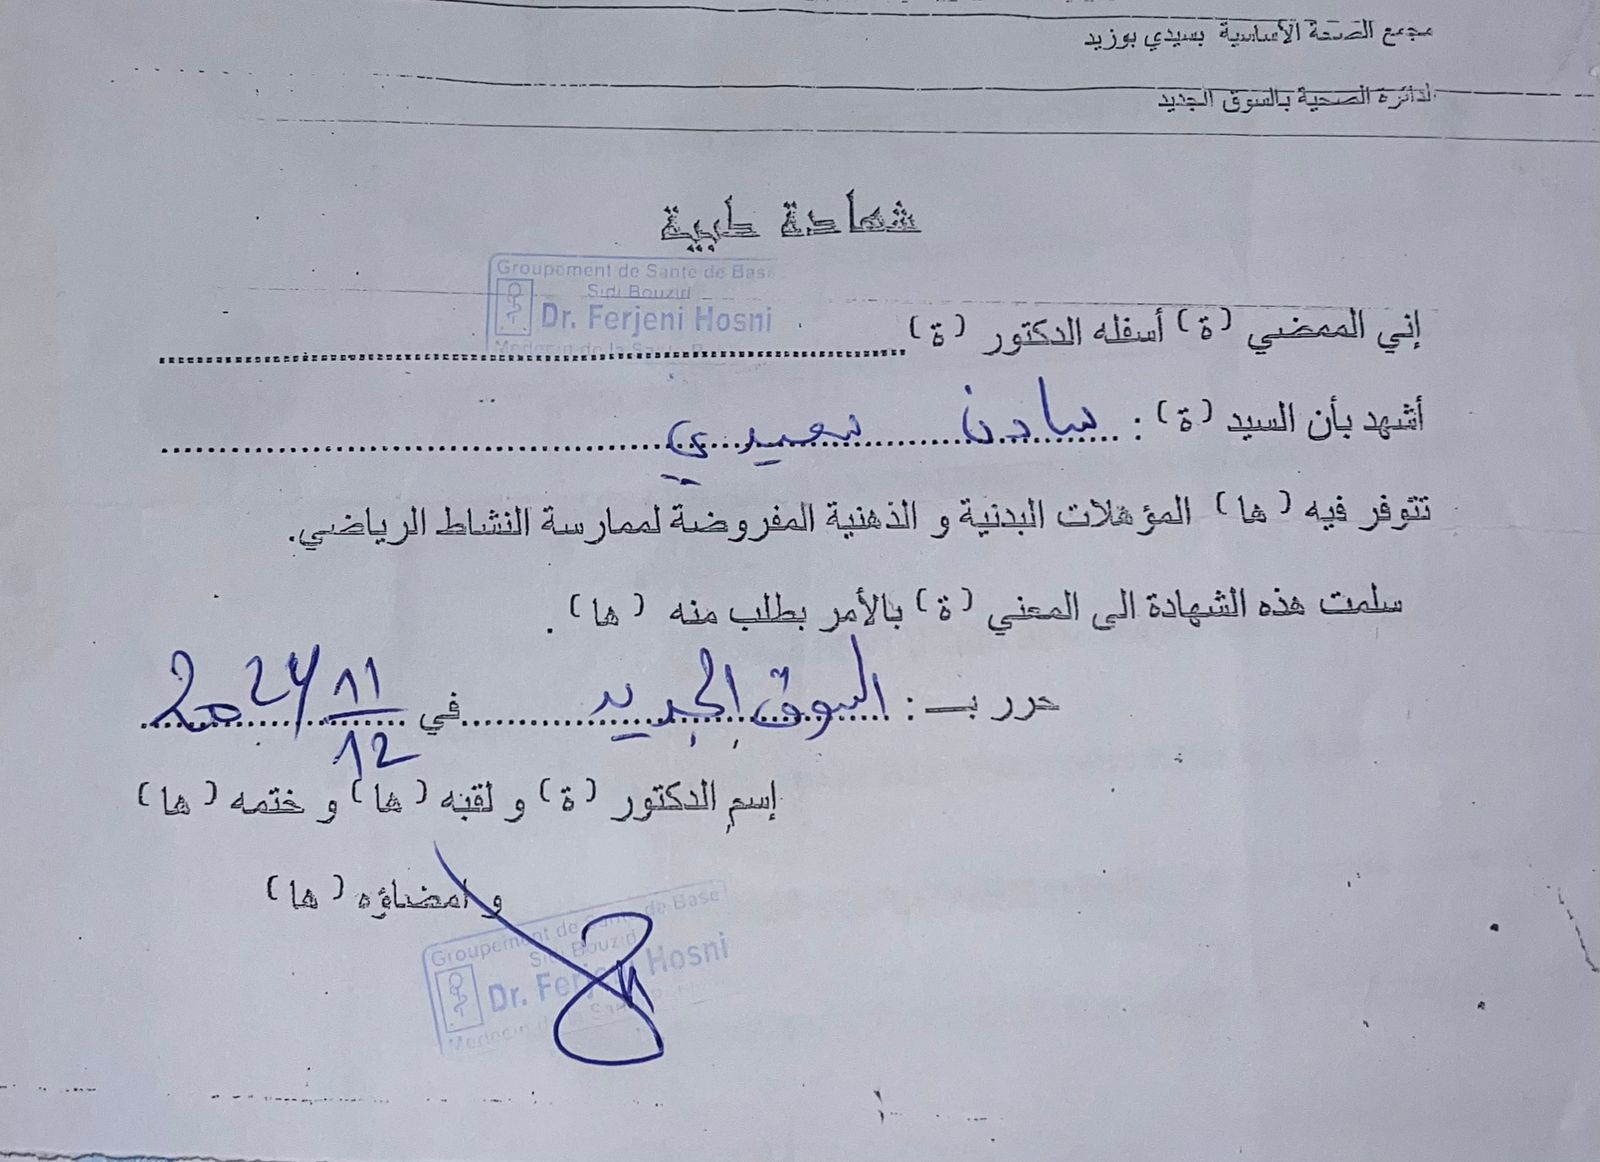 مجمع الصحة الأساسية بسيدي بوزيد
الدائرة الصحية بالسوق الجديد
شهادة طبية
Groupement de Santé de Base
Sidi Bouzid
Dr. Ferjeni Hosni
Medecin de la Santé
إني الممضي (ة) أسفله الدكتور (ة)
أشهد بأن السيد (ة) :
تتوفر فيه (ها) المؤهلات البدنية و الذهنية المفروضة لممارسة النشاط الرياضي.
سلمت هذه الشهادة الى المعني (ة) بالأمر بطلب منه (ها) .
حرر بـ : السوق الجديد في 2024/11/12
إسم الدكتور (ة) و لقبه (ها) و ختمه (ها)
و امضاؤه (ها)
Groupement de Santé de Base
Sidi Bouzid
Dr. Ferjeni Hosni
Medecin